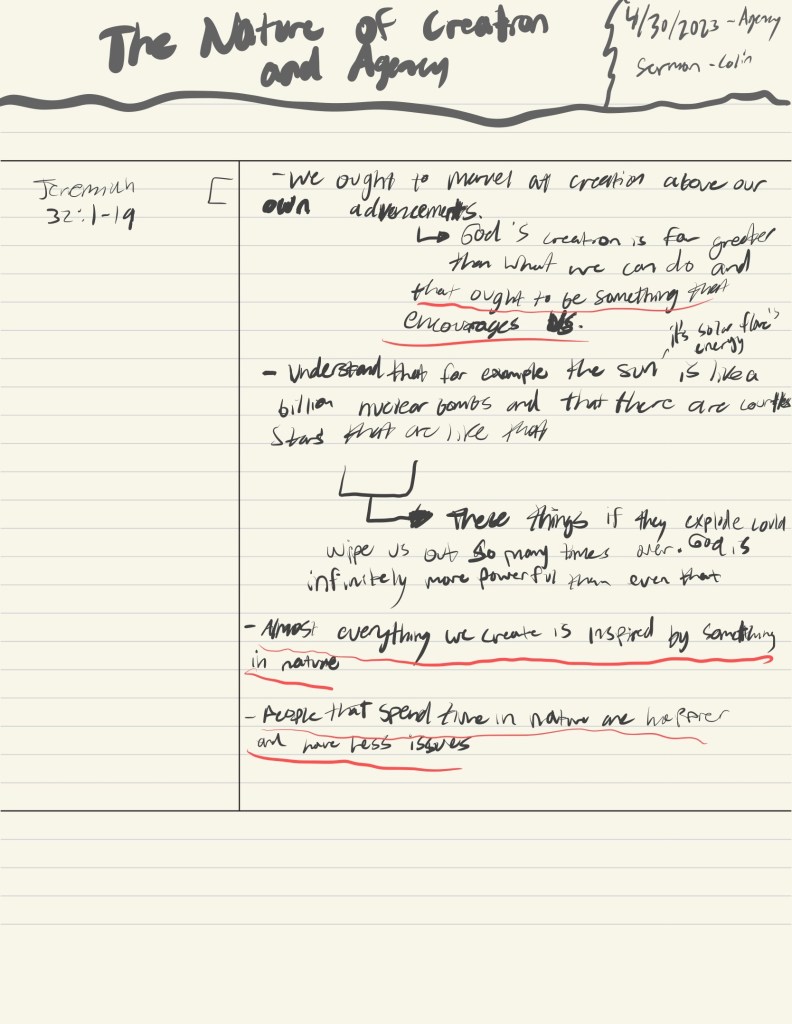 The Nature of Creation
and Agency
4/30/2023 - Agency
Sermon - Colin
Jeremiah
32:1-19
- We ought to marvel at creation above our
own advancements.
God's creation is far greater
than what we can do and
that ought to be something that
encourages us.
it's solar flare's
energy
- Understand that for example the sun is like a
billion nuclear bombs and that there are countless
stars that are like that
These things if they explode could
wipe us out so many times over. God is
infinitely more powerful than even that
- Almost everything we create is inspired by something
in nature
- People that spend time in nature are happier
and have less issues